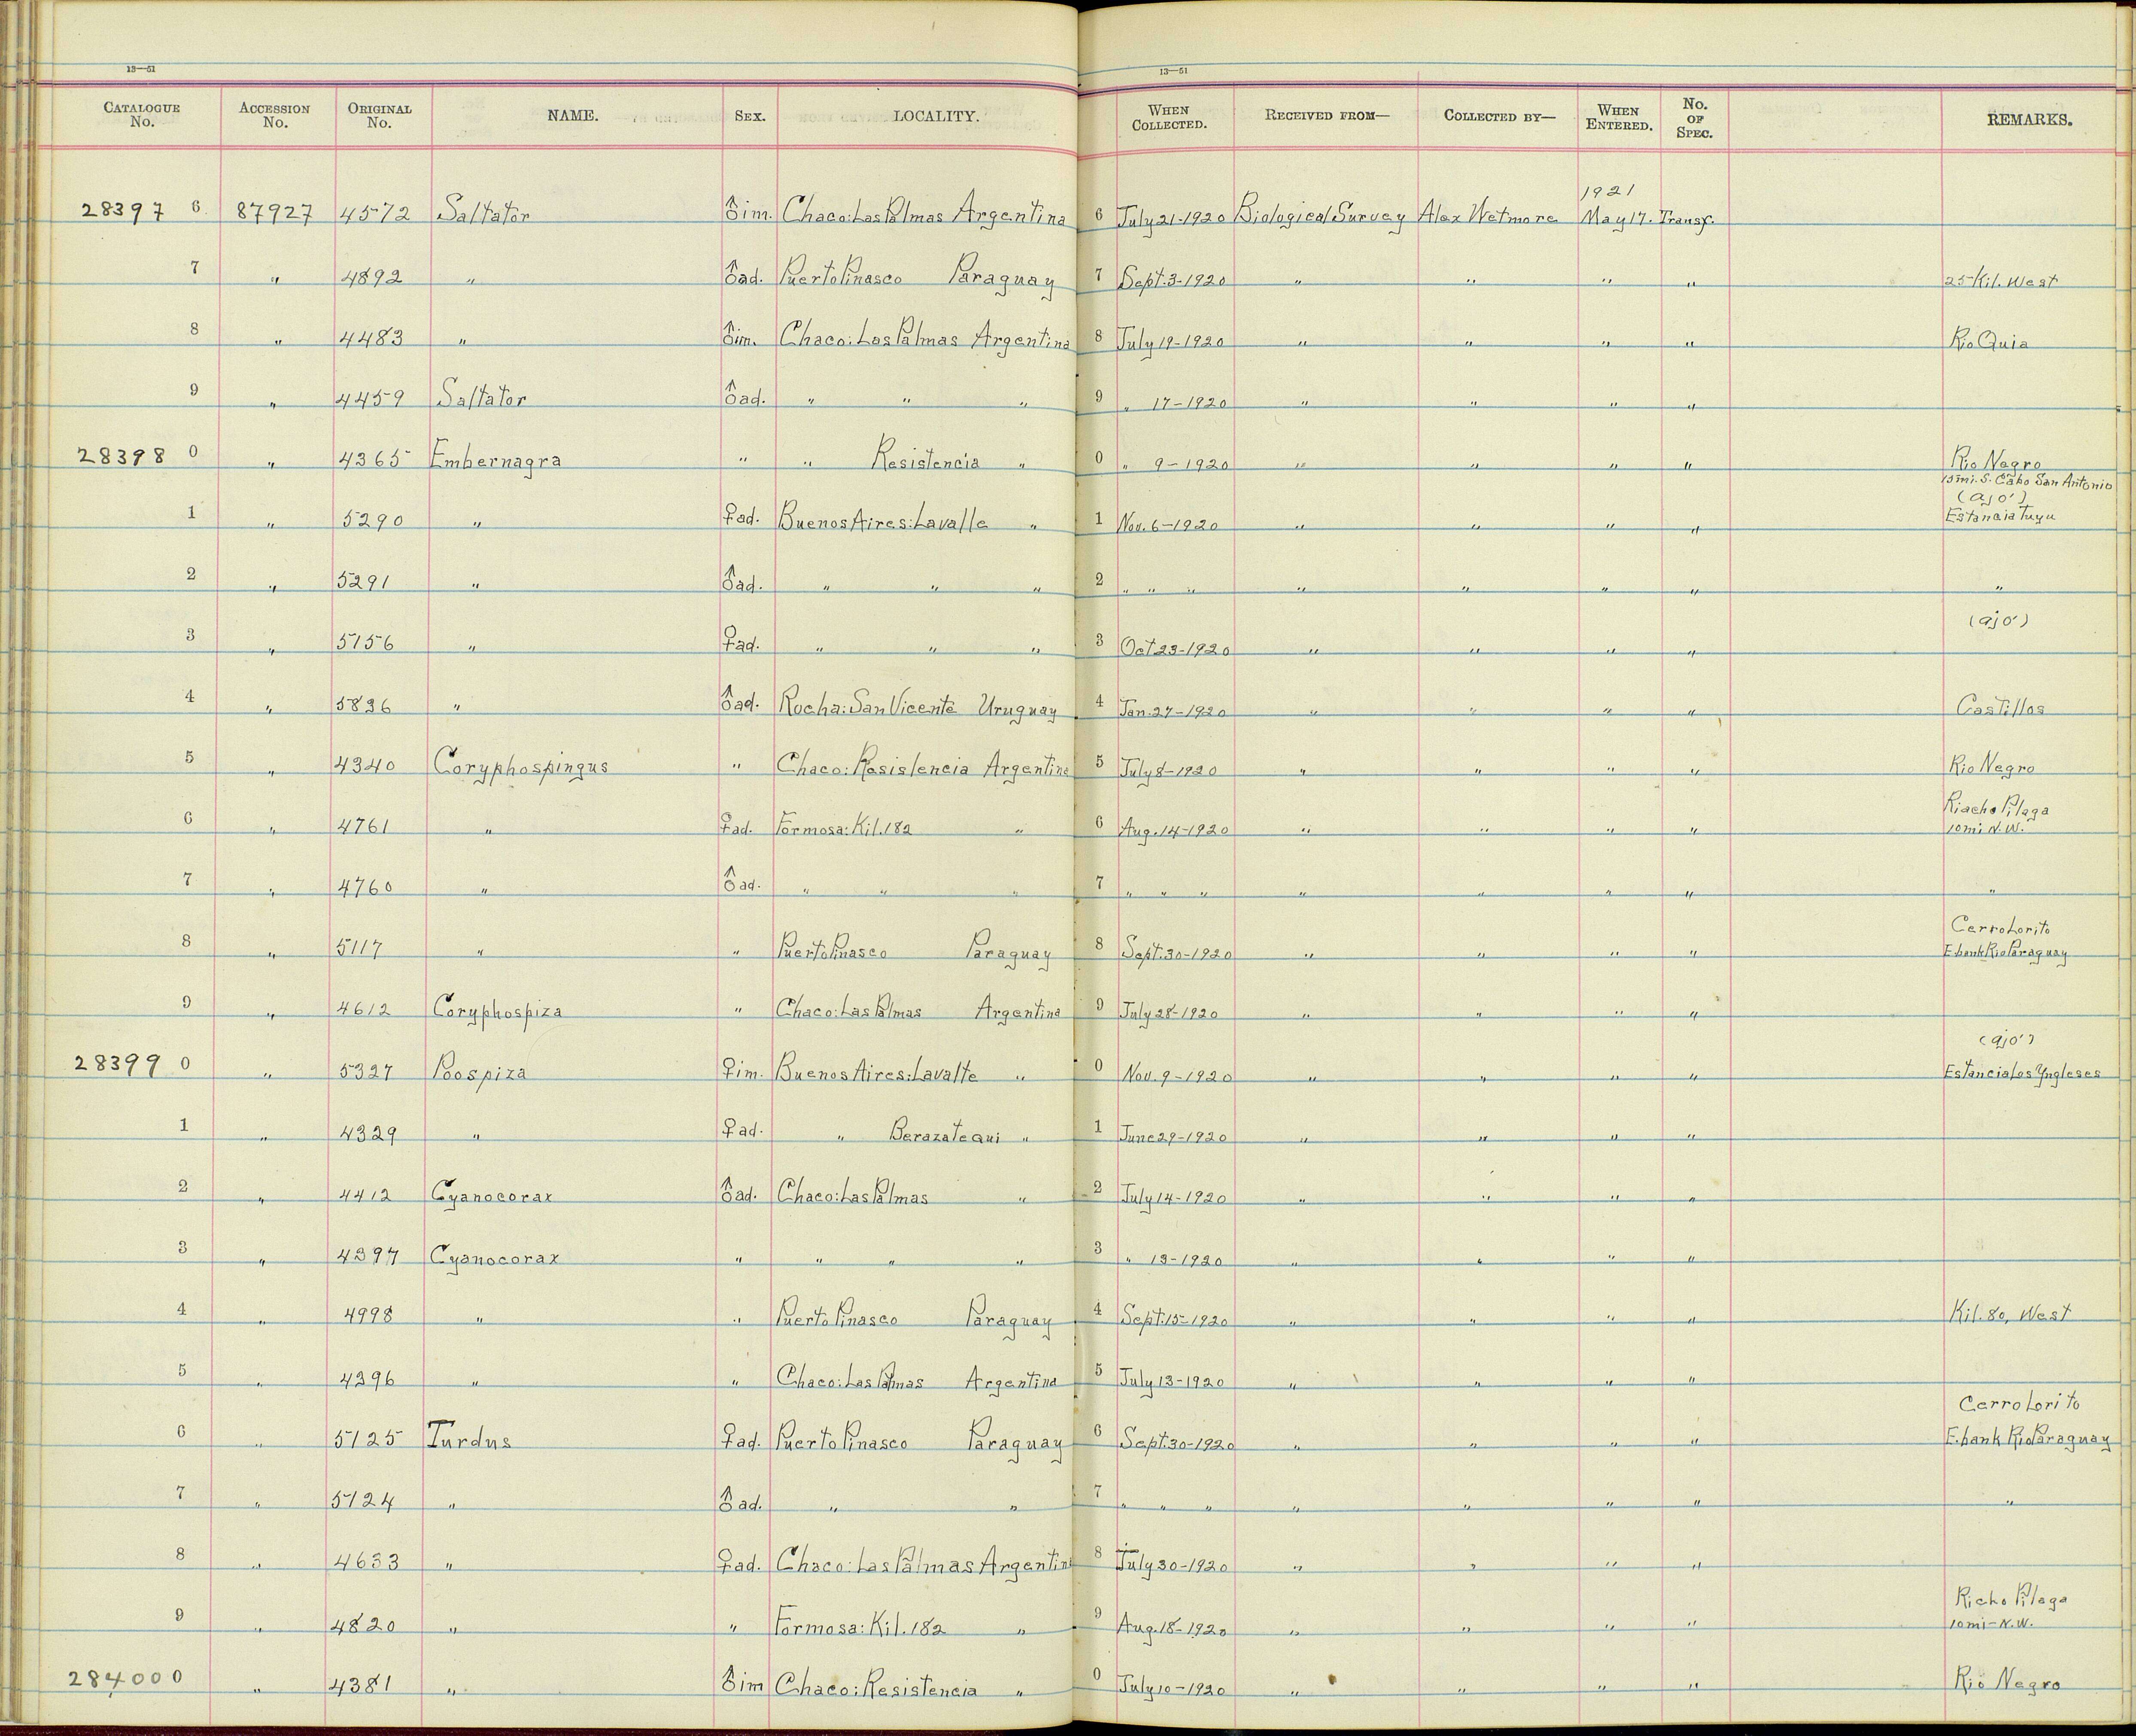 13—51 13—51
CATALOGUE No. ACCESSION No. ORIGINAL No. NAME. SEX. LOCALITY. WHEN COLLECTED. RECEIVED FROM— COLLECTED BY— WHEN ENTERED. No. OF SPEC. REMARKS.
28397 6 87927 4572 Saltator ♂im. Chaco: Las Palmas Argentina 6 July 21-1920 Biological Survey Alex Wetmore 1921 May 17. Transf.
7 " 4892 " ♂ad. Puerto Pinasco Paraguay 7 Sept. 3-1920 " " " " 25 Kil. West
8 " 4483 " ♂im. Chaco: Las Palmas Argentina 8 July 19-1920 " " " " Rio Quia
9 " 4459 Saltator ♂ad. " " " 9 " 17-1920 " " " "
28398 0 " 4365 Embernagra " " Resistencia " 0 " 9-1920 " " " " Rio Negro
1 " 5290 " ♀ad. Buenos Aires: Lavalle " 1 Nov. 6-1920 " " " " 15 mi. S. Cabo San Antonio (Ajo') Estancia Tuyu
2 " 5291 " ♂ad. " " " 2 " " " " " " " "
3 " 5156 " ♀ad. " " " 3 Oct 23-1920 " " " " (ajo')
4 " 5836 " ♂ad. Rocha: San Vicente Uruguay 4 Jan. 27-1920 " " " " Castillos
5 " 4340 Coryphospingus " Chaco: Resistencia Argentina 5 July 8-1920 " " " " Rio Negro
6 " 4761 " ♀ad. Formosa: Kil. 182 " 6 Aug. 14-1920 " " " " Riacho Pilaga 10 mi N.W.
7 " 4760 " ♂ad. " " " 7 " " " " " " " "
8 " 5117 " " Puerto Pinasco Paraguay 8 Sept. 30-1920 " " " " Cerro Lorito E bank Rio Paraguay
9 " 4612 Coryphospiza " Chaco: Las Palmas Argentina 9 July 28-1920 " " " "
28399 0 " 5327 Poospiza ♀im. Buenos Aires: Lavalle " 0 Nov. 9-1920 " " " " (ajo') Estancia Los Yngleses
1 " 4329 " ♀ad. " Berazategui " 1 June 29-1920 " " " "
2 " 4412 Cyanocorax ♂ad. Chaco: Las Palmas " 2 July 14-1920 " " " "
3 " 4397 Cyanocorax " " " " 3 " 13-1920 " " " "
4 " 4998 " " Puerto Pinasco Paraguay 4 Sept. 15-1920 " " " " Kil. 80, West
5 " 4396 " " Chaco: Las Palmas Argentina 5 July 13-1920 " " " "
6 " 5125 Turdus ♀ad. Puerto Pinasco Paraguay 6 Sept. 30-1920 " " " " Cerro Lorito E. bank Rio Paraguay
7 " 5124 " ♂ad. " " 7 " " " " " " " "
8 " 4633 " ♀ad. Chaco: Las Palmas Argentina 8 July 30-1920 " " " "
9 " 4820 " " Formosa: Kil. 182 " 9 Aug. 18-1920 " " " " Richo Pilaga 10 mi-N.W.
28400 0 " 4381 " ♂im Chaco: Resistencia " 0 July 10-1920 " " " " Rio Negro